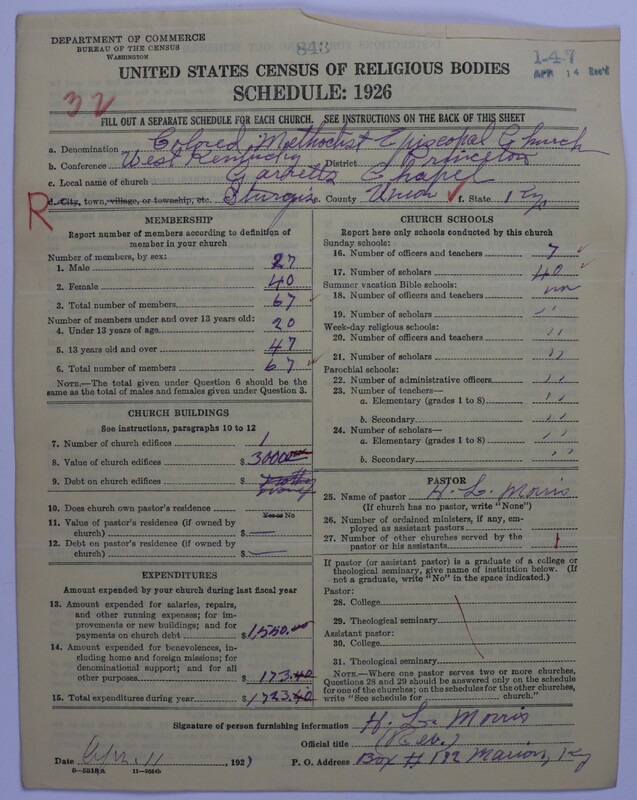 DEPARTMENT OF COMMERCE
BUREAU OF THE CENSUS
WASHINGTON
843
1-4-7
APR 14 Rec'd
UNITED STATES CENSUS OF RELIGIOUS BODIES
SCHEDULE: 1926
32
FILL OUT A SEPARATE SCHEDULE FOR EACH CHURCH. SEE INSTRUCTIONS ON THE BACK OF THIS SHEET
a. Denomination Colored Methodist Episcopal Church
b. Conference West Kentucky District Princeton
c. Local name of church Garretts Chapel
R
d. City, town, village, or township, etc. Sturgis e. County Union f. State Ky
MEMBERSHIP
Report number of members according to definition of member in your church
Number of members, by sex:
1. Male 27
2. Female 40
3. Total number of members 67
Number of members under and over 13 years old:
4. Under 13 years of age 20
5. 13 years old and over 47
6. Total number of members 67
NOTE.—The total given under Question 6 should be the same as the total of males and females given under Question 3.
CHURCH BUILDINGS
See instructions, paragraphs 10 to 12
7. Number of church edifices 1
8. Value of church edifices $ 3000
9. Debt on church edifices $
10. Does church own pastor's residence
Yes or No
11. Value of pastor's residence (if owned by church) $ —
12. Debt on pastor's residence (if owned by church) $ —
EXPENDITURES
Amount expended by your church during last fiscal year
13. Amount expended for salaries, repairs, and other running expenses; for improvements or new buildings; and for payments on church debt $ 1,550.00
14. Amount expended for benevolences, including home and foreign missions; for denominational support; and for all other purposes $ 173.40
15. Total expenditures during year $ 1,723.40
CHURCH SCHOOLS
Report here only schools conducted by this church
Sunday schools:
16. Number of officers and teachers 7
17. Number of scholars 40
Summer vacation Bible schools:
18. Number of officers and teachers
19. Number of scholars ''
Week-day religious schools:
20. Number of officers and teachers ''
21. Number of scholars ''
Parochial schools:
22. Number of administrative officers ''
23. Number of teachers—
a. Elementary (grades 1 to 8) ''
b. Secondary ''
24. Number of scholars—
a. Elementary (grades 1 to 8) ''
b. Secondary ''
PASTOR
25. Name of pastor H. L. Morris
(If church has no pastor, write "None")
26. Number of ordained ministers, if any, employed as assistant pastors
27. Number of other churches served by the pastor or his assistants 1
If pastor (or assistant pastor) is a graduate of a college or theological seminary, give name of institution below. (If not a graduate, write "No" in the space indicated.)
Pastor:
28. College
29. Theological seminary
Assistant pastor:
30. College
31. Theological seminary
NOTE.—Where one pastor serves two or more churches, Questions 28 and 29 should be answered only on the schedule for one of the churches; on the schedules for the other churches, write "See schedule for church."
Signature of person furnishing information H. L. Morris
Official title (Rev.)
Date Apr. 11, 1927 P. O. Address Box # 182 Marion, Ky
8—5518A 11—9564b